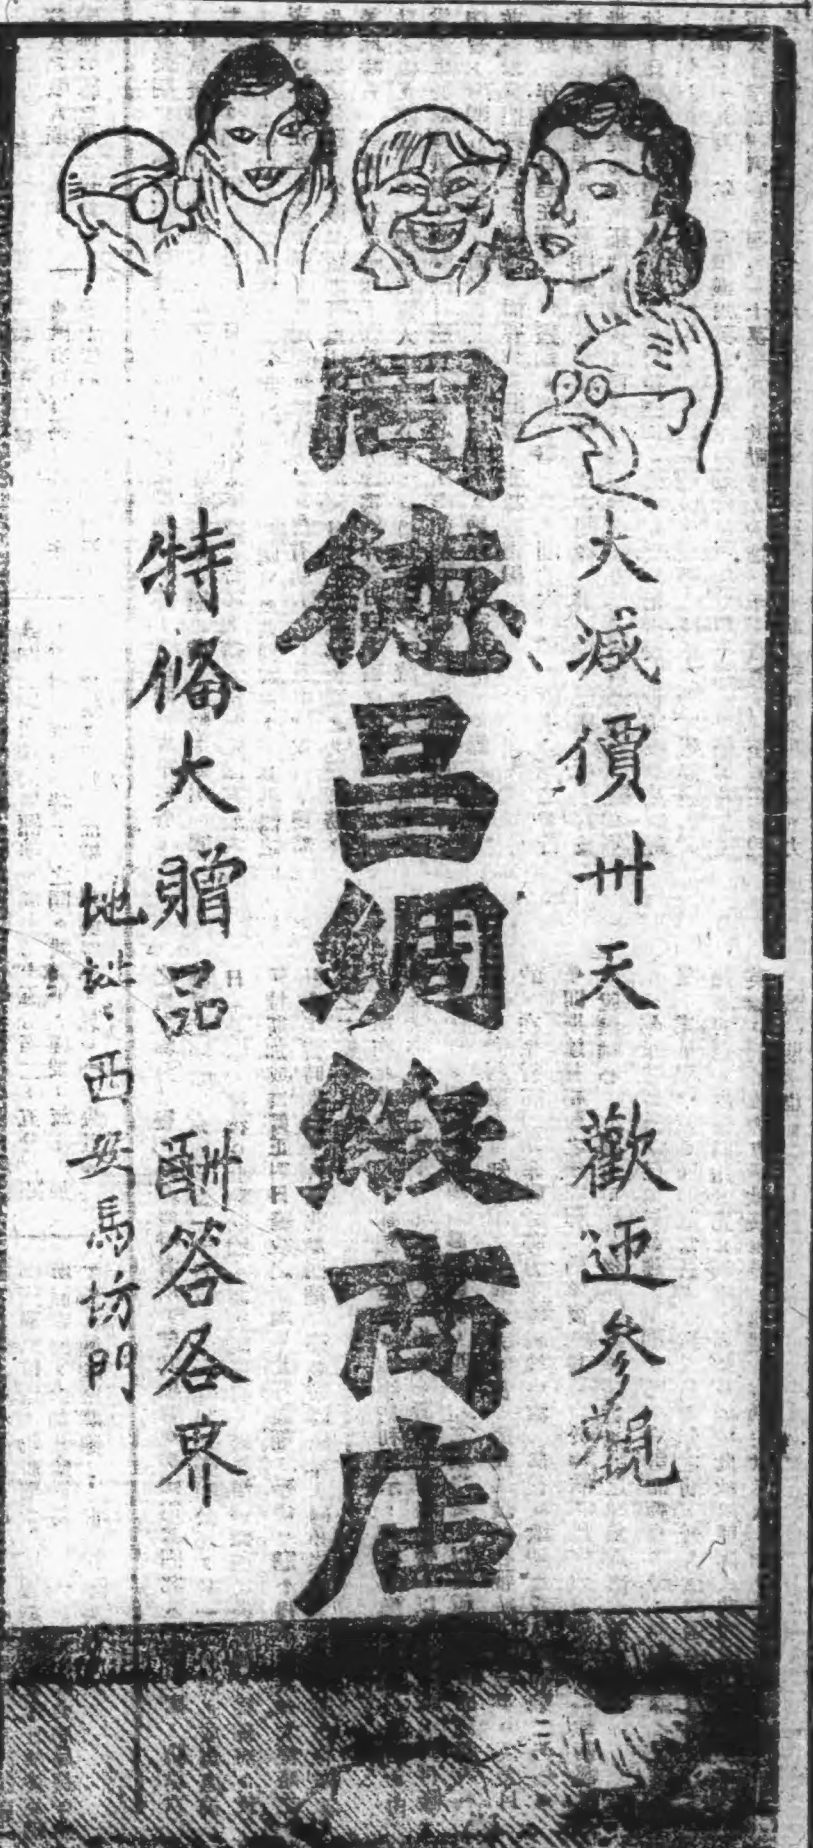 大減價卅天 歡迎參觀
同德昌綢緞商店
特備大贈品 酬答各界
地址：西安馬坊門